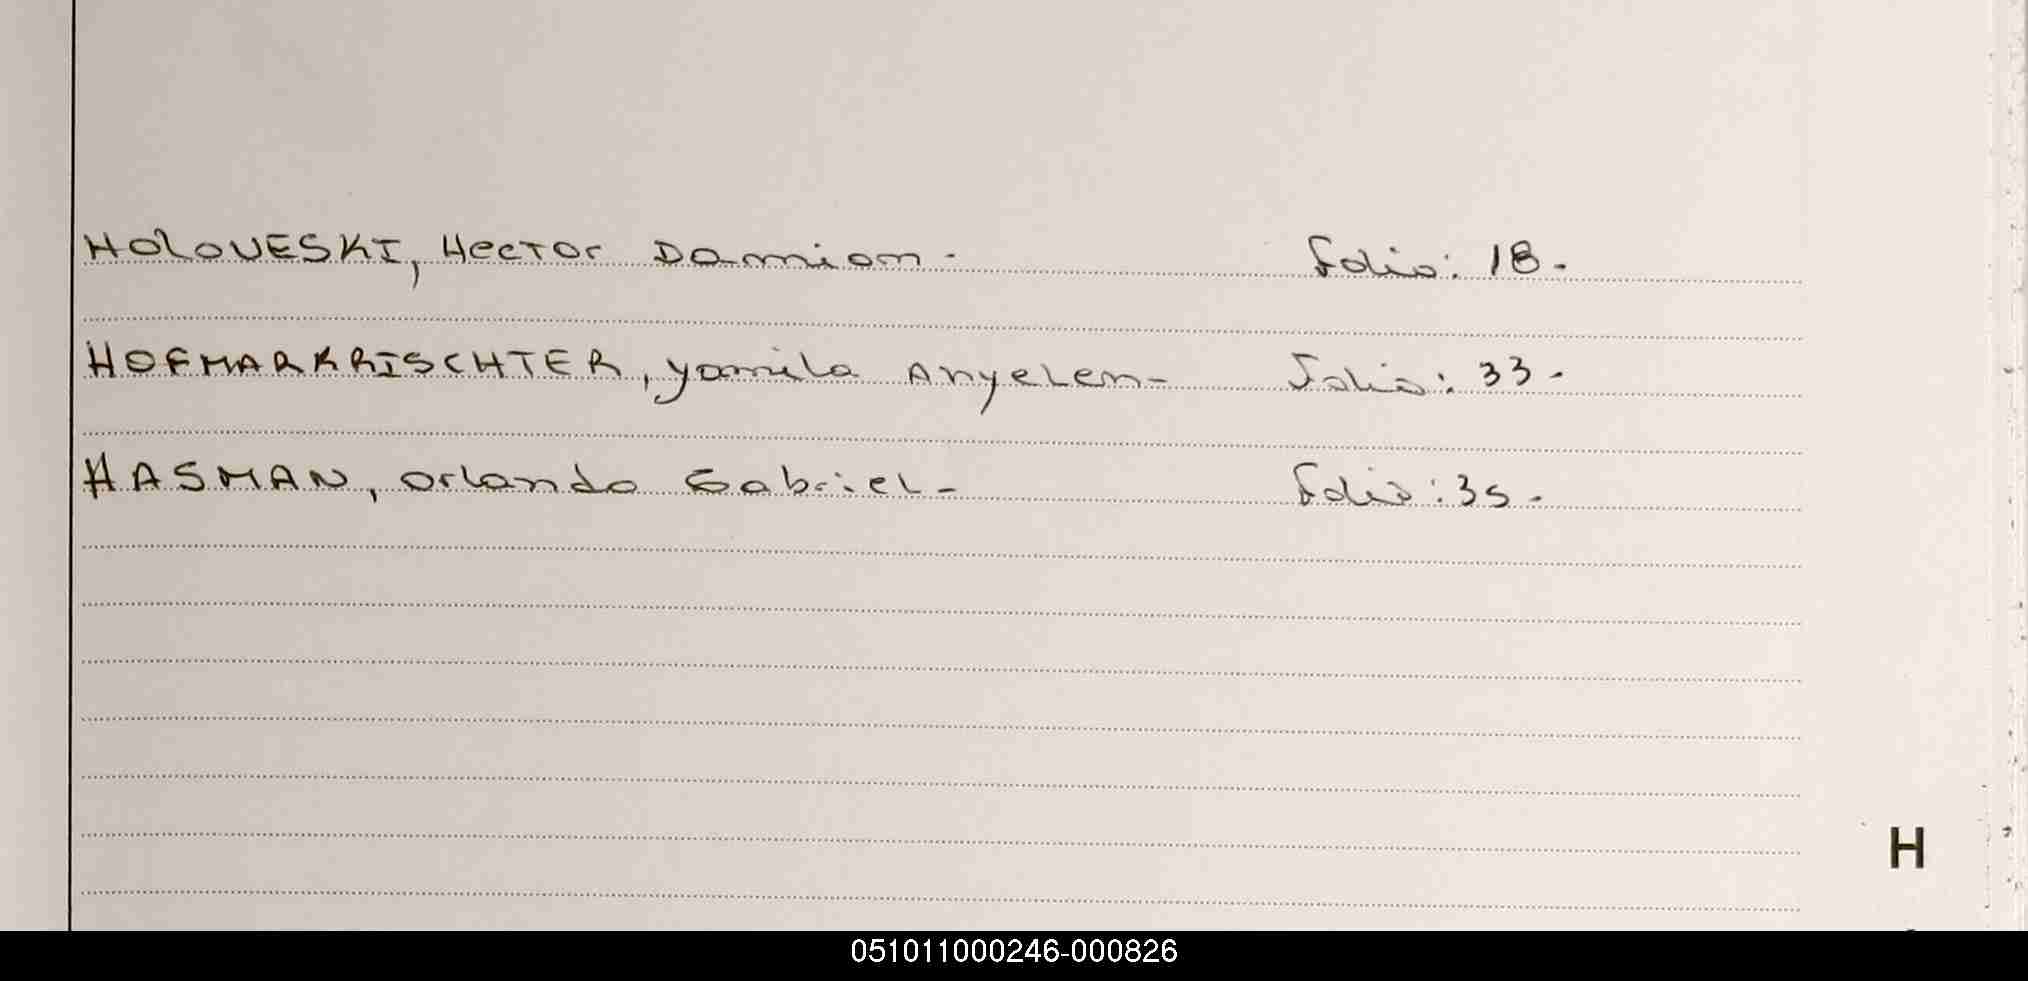 HOLOVESKI, Hector Damian - Folio: 18.
HOFMARKRISCHTER, Yamila Anyelen - Folio: 33.
HASMAN, Orlando Gabriel - Folio: 35.
H
051011000246-000826